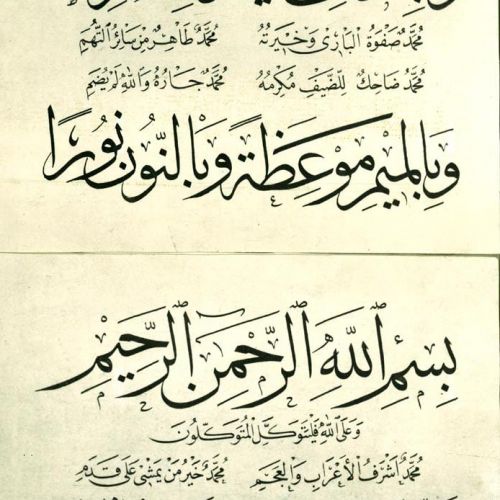 محمد صفوة الباري وخيرته محمد طاهر من سائر التهم
محمد ضاحك للضيف مكرمه محمد جاره والله لم يضم
وبالميم موعظة وبالنون نورا
بسم الله الرحمن الرحيم
وعلى الله فليتوكل المتوكلون
محمد اشرف الأعراب والعجم محمد خير من يمشى على قدم